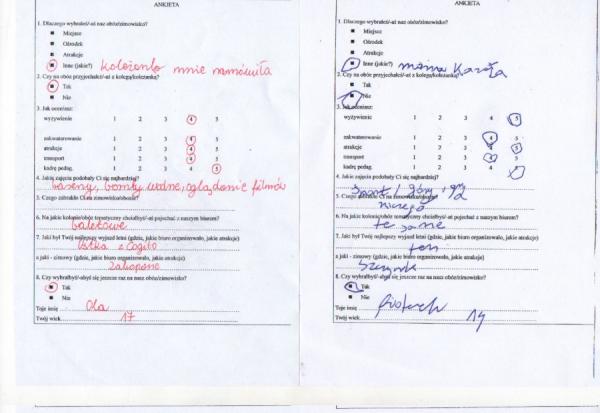 ANKIETA
1. Dlaczego wybrałeś/-aś nasz obóz/zimowisko?
Miejsce
Ośrodek
Atrakcje
Inne (jakie?) koleżanka mnie namówiła
2. Czy na obóz przyjechałeś/-aś z kolegą/koleżanką?
Tak
Nie
3. Jak oceniasz:
wyżywienie 1 2 3 4 5
zakwaterowanie 1 2 3 4 5
atrakcje 1 2 3 4 5
transport 1 2 3 4 5
kadrę pedag. 1 2 3 4 5
4. Jakie zajęcia podobały Ci się najbardziej?
baseny, bomby wodne, oglądanie filmów
5. Czego zabrakło Ci na zimowisku/obozie?
6. Na jakie kolonie/obóz tematyczny chciałbyś/-ał pojechać z naszym biurem?
baletowe
7. Jaki był Twój najlepszy wyjazd letni (gdzie, jakie biuro organizowało, jakie atrakcje)
Ustka z Cogito
z jaki - zimowy (gdzie, jakie biuro organizowało, jakie atrakcje)
Zakopane
8. Czy wybrałbyś/-abyś się jeszcze raz na nasz obóz/zimowisko?
Tak
Nie
Toje imię Ola
Twój wiek 17
ANKIETA
1. Dlaczego wybrałeś/-aś nasz obóz/zimowisko?
Miejsce
Ośrodek
Atrakcje
Inne (jakie?) mama kazała
2. Czy na obóz przyjechałeś/-aś z kolegą/koleżanką?
Tak
Nie
3. Jak oceniasz:
wyżywienie 1 2 3 4 5
zakwaterowanie 1 2 3 4 5
atrakcje 1 2 3 4 5
transport 1 2 3 4 5
kadrę pedag. 1 2 3 4
4. Jakie zajęcia podobały Ci się najbardziej?
Sport, góry, gry
5. Czego zabrakło Ci na zimowisku/obozie?
niczego
6. Na jakie kolonie/obóz tematyczny chciałbyś/-ał pojechać z naszym biurem?
te same
7. Jaki był Twój najlepszy wyjazd letni (gdzie, jakie biuro organizowało, jakie atrakcje)
ten
z jaki - zimowy (gdzie, jakie biuro organizowało, jakie atrakcje)
8. Czy wybrałbyś/-abyś się jeszcze raz na nasz obóz/zimowisko?
Tak
Nie
Toje imię
Twój wiek 14